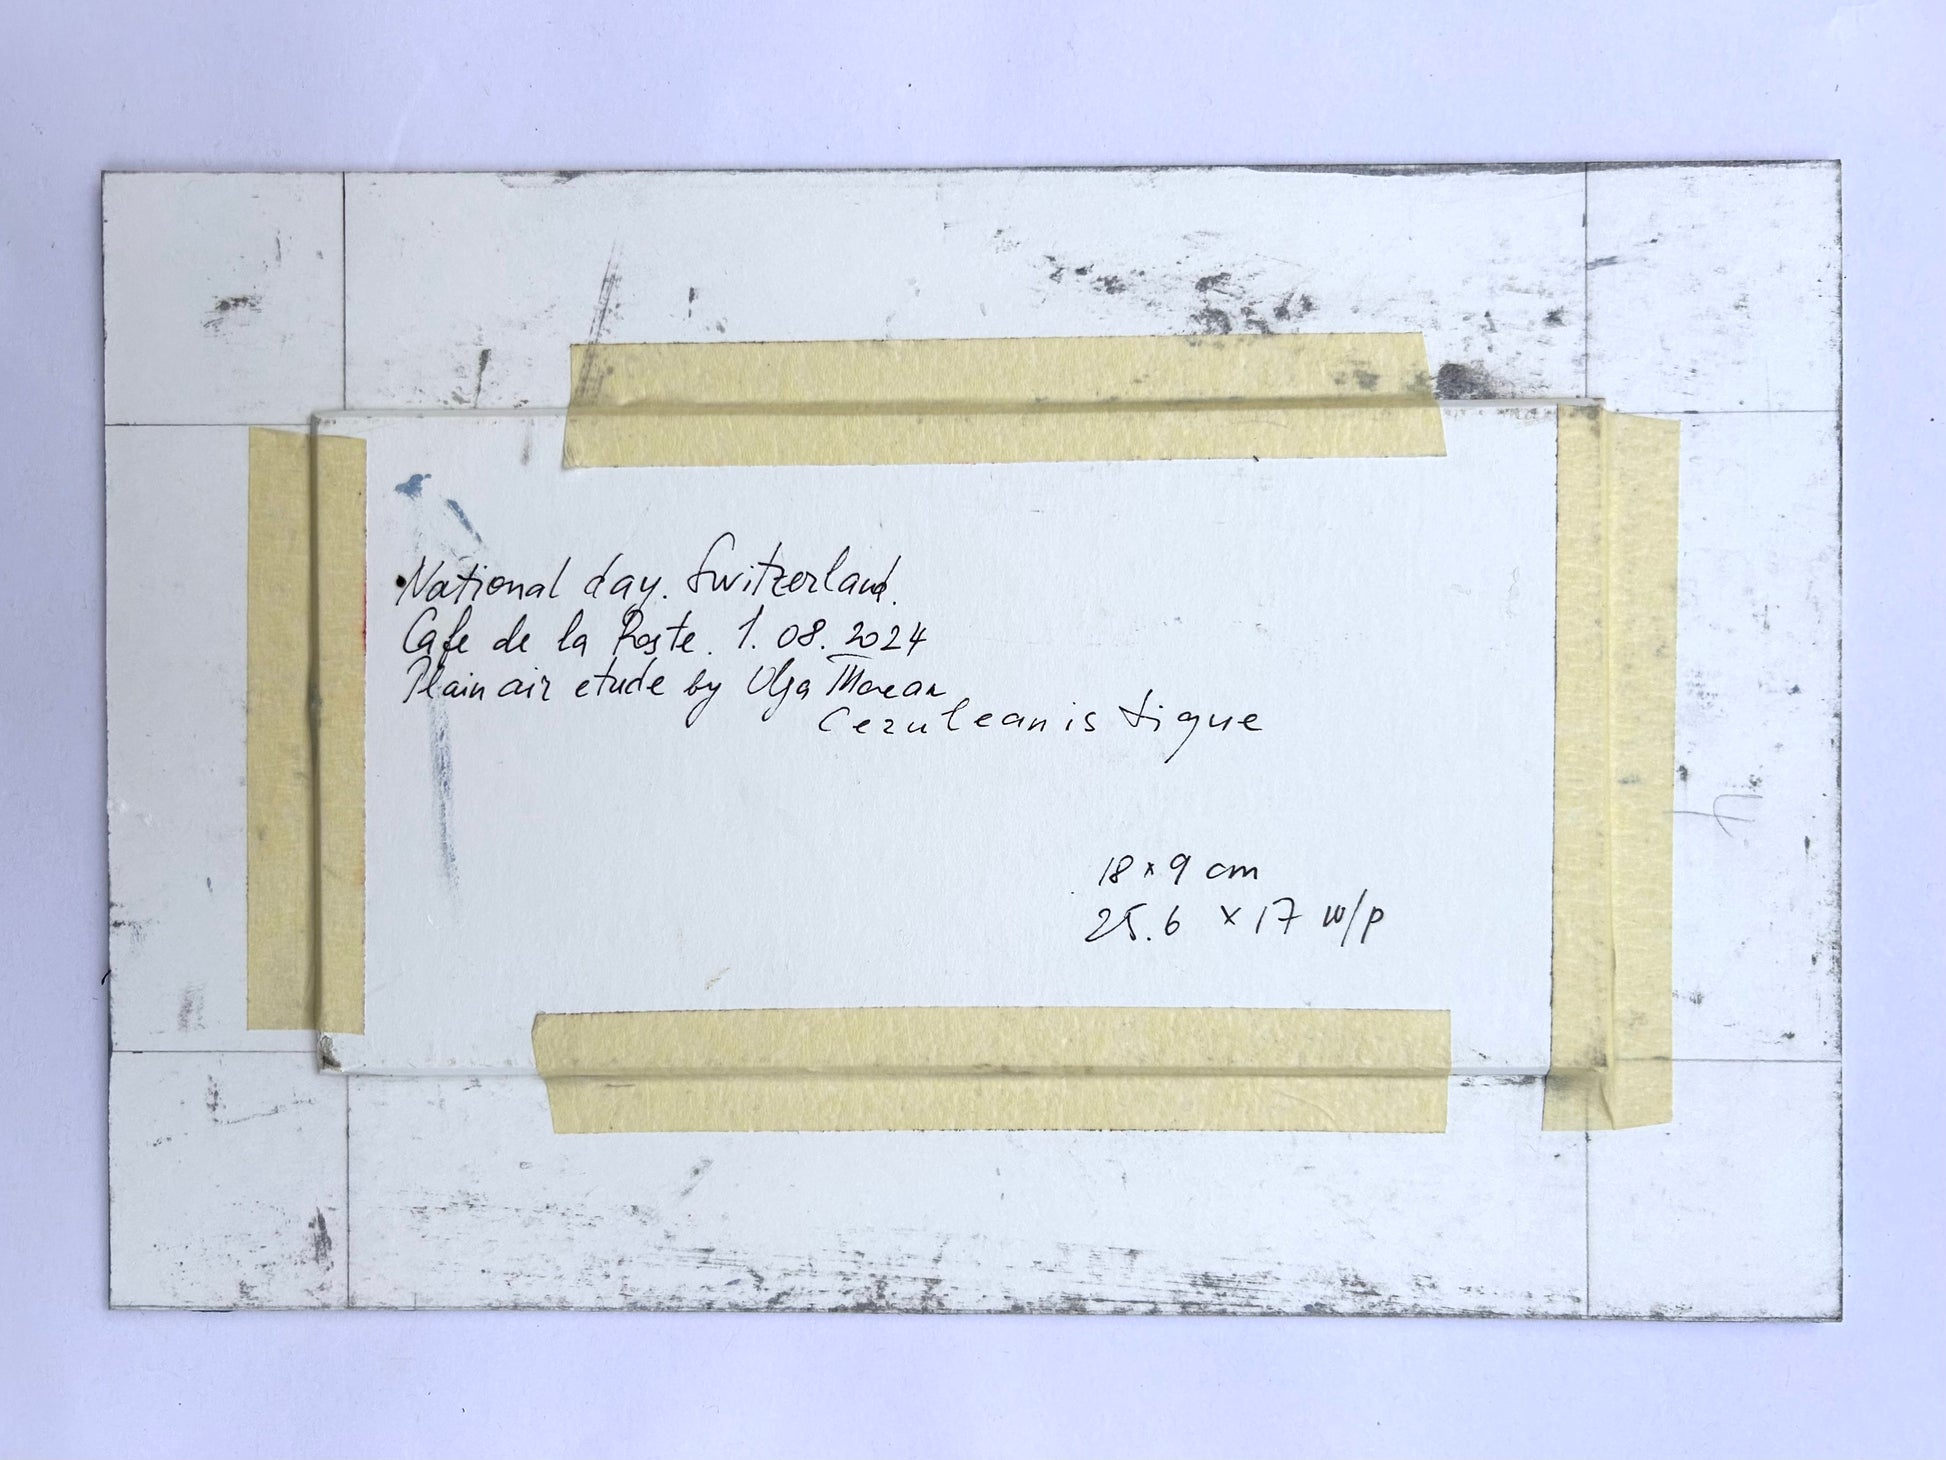 National day. Switzerland.
Cafe de la Poste. 1. 08. 2024
Plain air etude by Olga
Ceruleanistique
18 x 9 cm
25.6 x 17 w/p